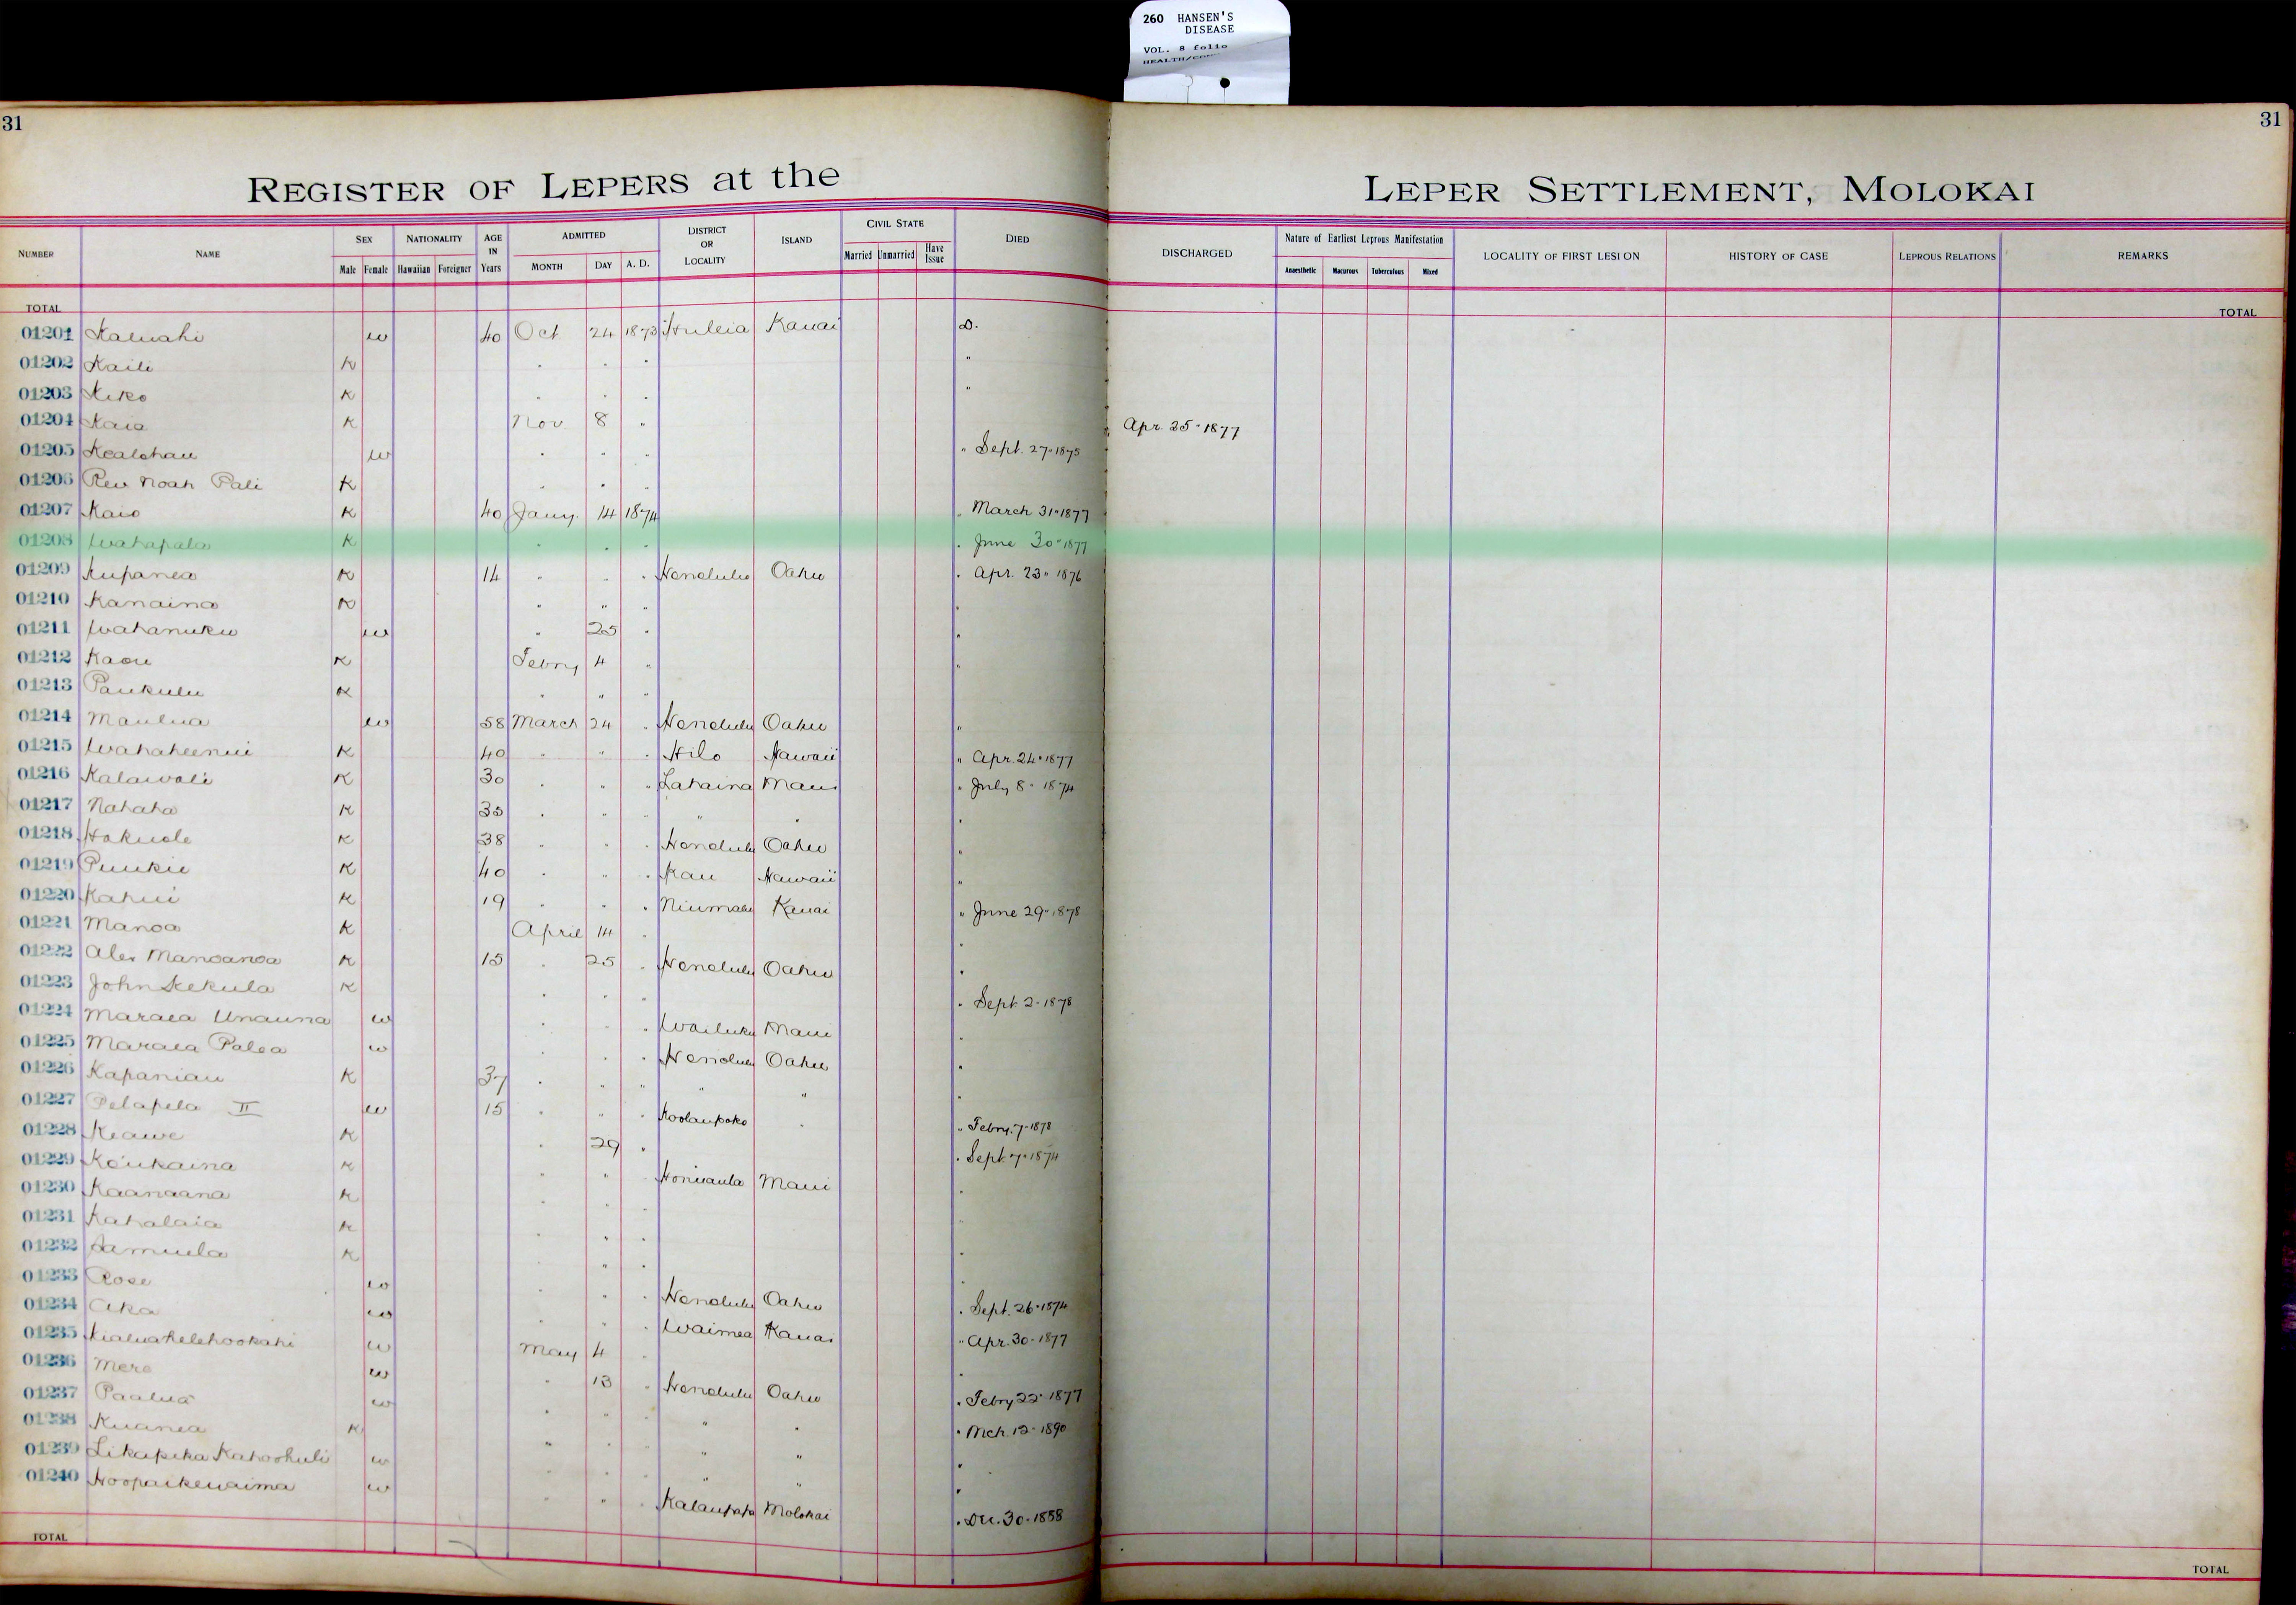 260 HANSEN'S
DISEASE
VOL. 8 folio
31
31
REGISTER OF LEPERS at the LEPER SETTLEMENT, MOLOKAI
NUMBER NAME SEX Male Female NATIONALITY Hawaiian Foreigner AGE IN Years ADMITTED MONTH DAY A. D. DISTRICT OR LOCALITY ISLAND CIVIL STATE Married Unmarried Have Issue DIED DISCHARGED Nature of Earliest Leprous Manifestation Anaesthetic Macurous Tuberculous Mixed LOCALITY OF FIRST LESION HISTORY OF CASE LEPROUS RELATIONS REMARKS
TOTAL TOTAL
01201 Kaluahi w 40 Oct 24 1873 Huleia Kauai D.
01202 Kaili K " " " "
01203 Kiko K " " " "
01204 Kaia K Nov 8 " Apr. 25" 1877
01205 Kealohau w " " " " Sept. 27" 1875
01206 Rev Noah Pali K " " "
01207 Kaio K 40 Jany. 14 1874 " March 31" 1877
01208 Wahapala K " " " " June 30" 1877
01209 Kupanea K 14 " " " Honolulu Oahu " Apr. 23" 1876
01210 Kanaina K " " " "
01211 Wahanuku w " 25 " "
01212 Kaou K Febry 4 " "
01213 Paukulu K " " "
01214 Maulua w 58 March 24 " Honolulu Oahu "
01215 Wahaheenui K 40 " " " Hilo Hawaii " Apr. 24" 1877
01216 Kalawali K 30 " " " Lahaina Maui " July 8" 1874
01217 Nahaha K 35 " " " " " "
01218 Hakuole K 38 " " " Honolulu Oahu "
01219 Puukii K 40 " " " Kau Hawaii "
01220 Kahui K 19 " " " Niumalu Kauai " June 29" 1878
01221 Manoa K April 14 " "
01222 Alex Manoanoa K 15 " 25 " Honolulu Oahu "
01223 John Kekula K " " " " Sept. 2" 1878
01224 Maraea Unauna w " " " Wailuku Maui "
01225 Maraea Palea w " " " Honolulu Oahu "
01226 Kapaniau K 37 " " " " " "
01227 Pelapela II w 15 " " " Koolaupoko " " Febry. 7" 1878
01228 Keawe K " 29 " " Sept. 7" 1874
01229 Koukaina K " " " Honuaula Maui "
01230 Kaanaana K " " "
01231 Kahalaia K " " " "
01232 Samuela K " " "
01233 Rose w " " " Honolulu Oahu " Sept. 26" 1874
01234 Aka w " " " Waimea Kauai " Apr. 30" 1877
01235 Kialuahelehookahi w May 4 " "
01236 Mere w " 13 " Honolulu Oahu " Febry 22" 1877
01237 Paalua w " " " " " " Mch. 12" 1890
01238 Kuanea K " " " " " "
01239 Likapeka Kahoohuli w " " " " " "
01240 Hoopaikewaima w " " " Kalaupapa Molokai " Dec. 30" 1888
TOTAL TOTAL